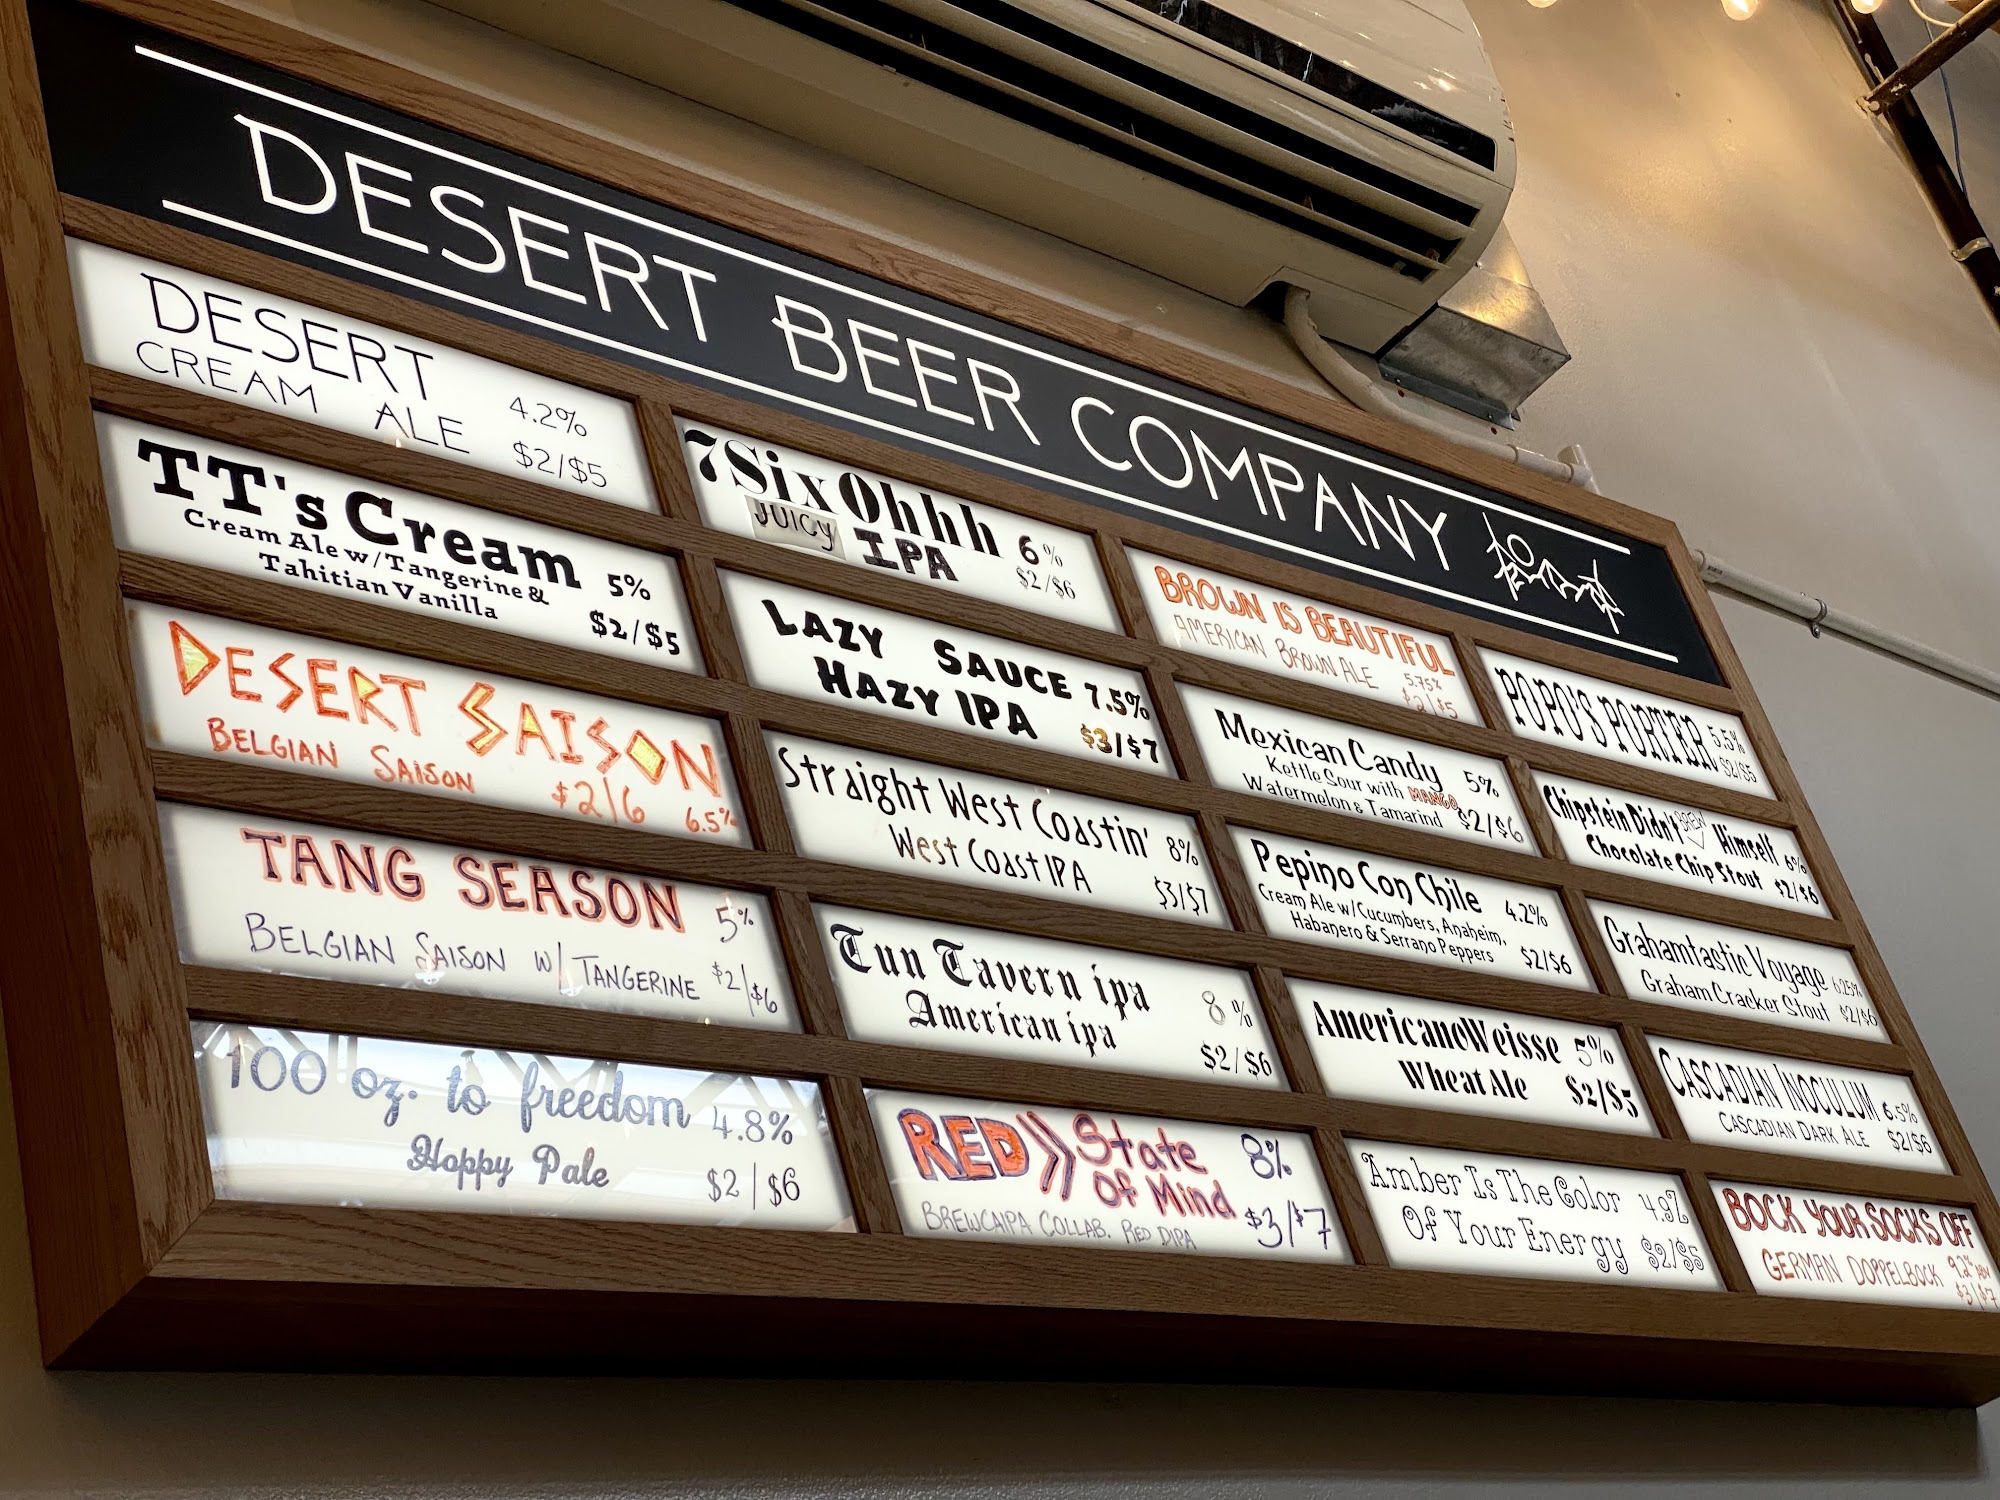 DESERT BEER COMPANY
DESERT
CREAM ALE 4.2%
$2/$5
TT's Cream
Cream Ale w/Tangerine &
Tahitian Vanilla
5%
$2/$5
DESERT SAISON
BELGIAN SAISON $2/6 6.5%
TANG SEASON 5%
BELGIAN SAISON W/ TANGERINE $2/$6
100 oz. to freedom 4.8%
Hoppy Pale $2/$6
7SixOhhh 6%
JUICY IPA $2/$6
LAZY SAUCE 7.5%
HAZY IPA $3/$7
Straight West Coastin' 8%
West Coast IPA $3/$7
Tun Tavern ipa 8%
American ipa $2/$6
RED>> State
Of Mind
8%
BREWCAIPA COLLAB. RED DIPA $3/$7
BROWN IS BEAUTIFUL
AMERICAN BROWN ALE 5.75%
$2/$5
Mexican Candy 5%
Kettle Sour with MANGO
Watermelon & Tamarind $2/$6
Pepino Con Chile 4.2%
Cream Ale w/Cucumbers, Anaheim,
Habanero & Serrano Peppers $2/$6
AmericanoWeisse 5%
Wheat Ale $2/$5
Amber Is The Color 4.9%
Of Your Energy $2/$5
POPO'S PORTER 5.5%
$2/$5
Chipstein Didn't BREW Himself 6%
Chocolate Chip Stout $2/$6
Grahamtastic Voyage 6.25%
Graham Cracker Stout $2/$6
CASCADIAN INOCULUM 6.5%
CASCADIAN DARK ALE $2/$6
BOCK YOUR SOCKS OFF
GERMAN DOPPELBOCK 9.2% ABV
$3/$7